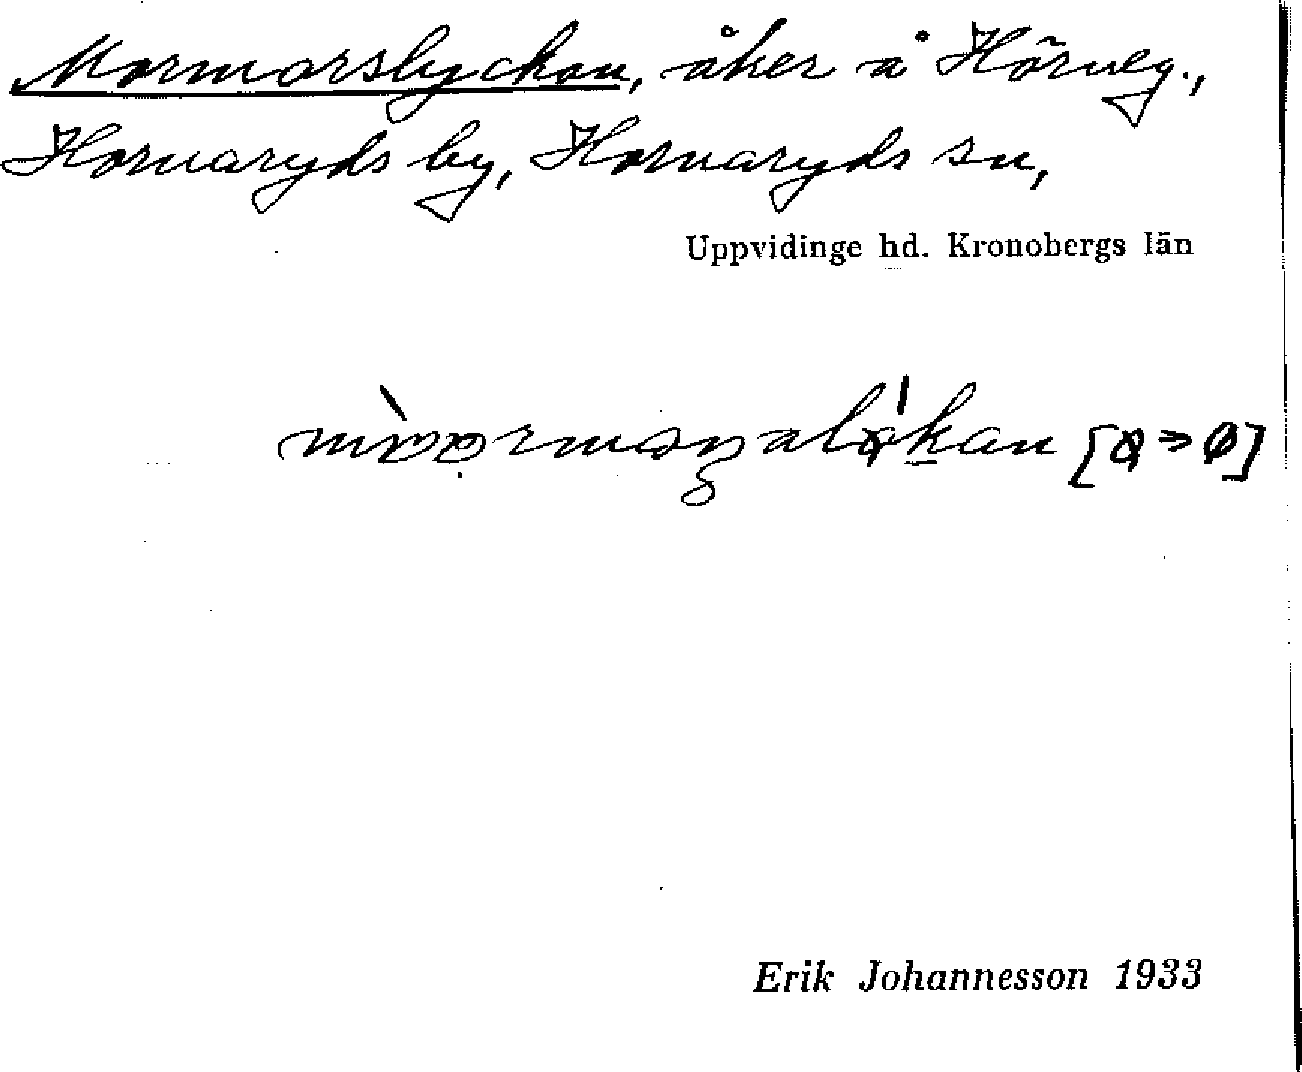 Mormorslyckan, åker å Hörneg.,
Hornaryds by, Hornaryds sn,
Uppvidinge hd. Kronobergs län
Erik Johannesson 1933